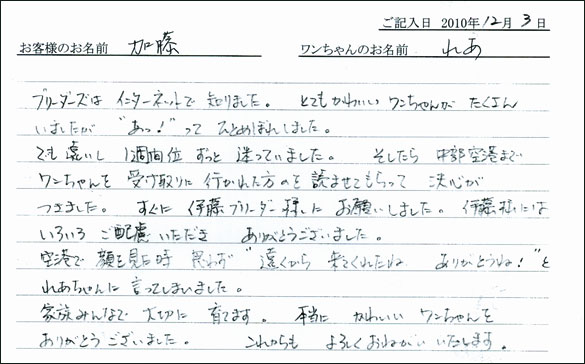 ご記入日 2010年12月3日
お客様のお名前 加藤 ワンちゃんのお名前 れあ
ブリーダーズは インターネットで 知りました。 とてもかわいい ワンちゃんが たくさん
いましたが "あっ!"って ひとめぼれしました。
でも 遠いし 1週間位 ずっと 迷っていました。 そしたら 中部空港まで
ワンちゃんを 受け取りに 行かれた方のを 読ませてもらって 決心が
つきました。 すぐに 伊藤ブリーダー様に お願いしました。 伊藤様には
いろいろ ご配慮 いただき ありがとうございました。
空港で 顔を見た時 思わず "遠くから 来てくれたね ありがとうね!"と
れあちゃんに 言ってしまいました。
家族みんなで 大切に 育てます。 本当に かわいい ワンちゃんを
ありがとうございました。 これからも よろしくおねがいいたします。